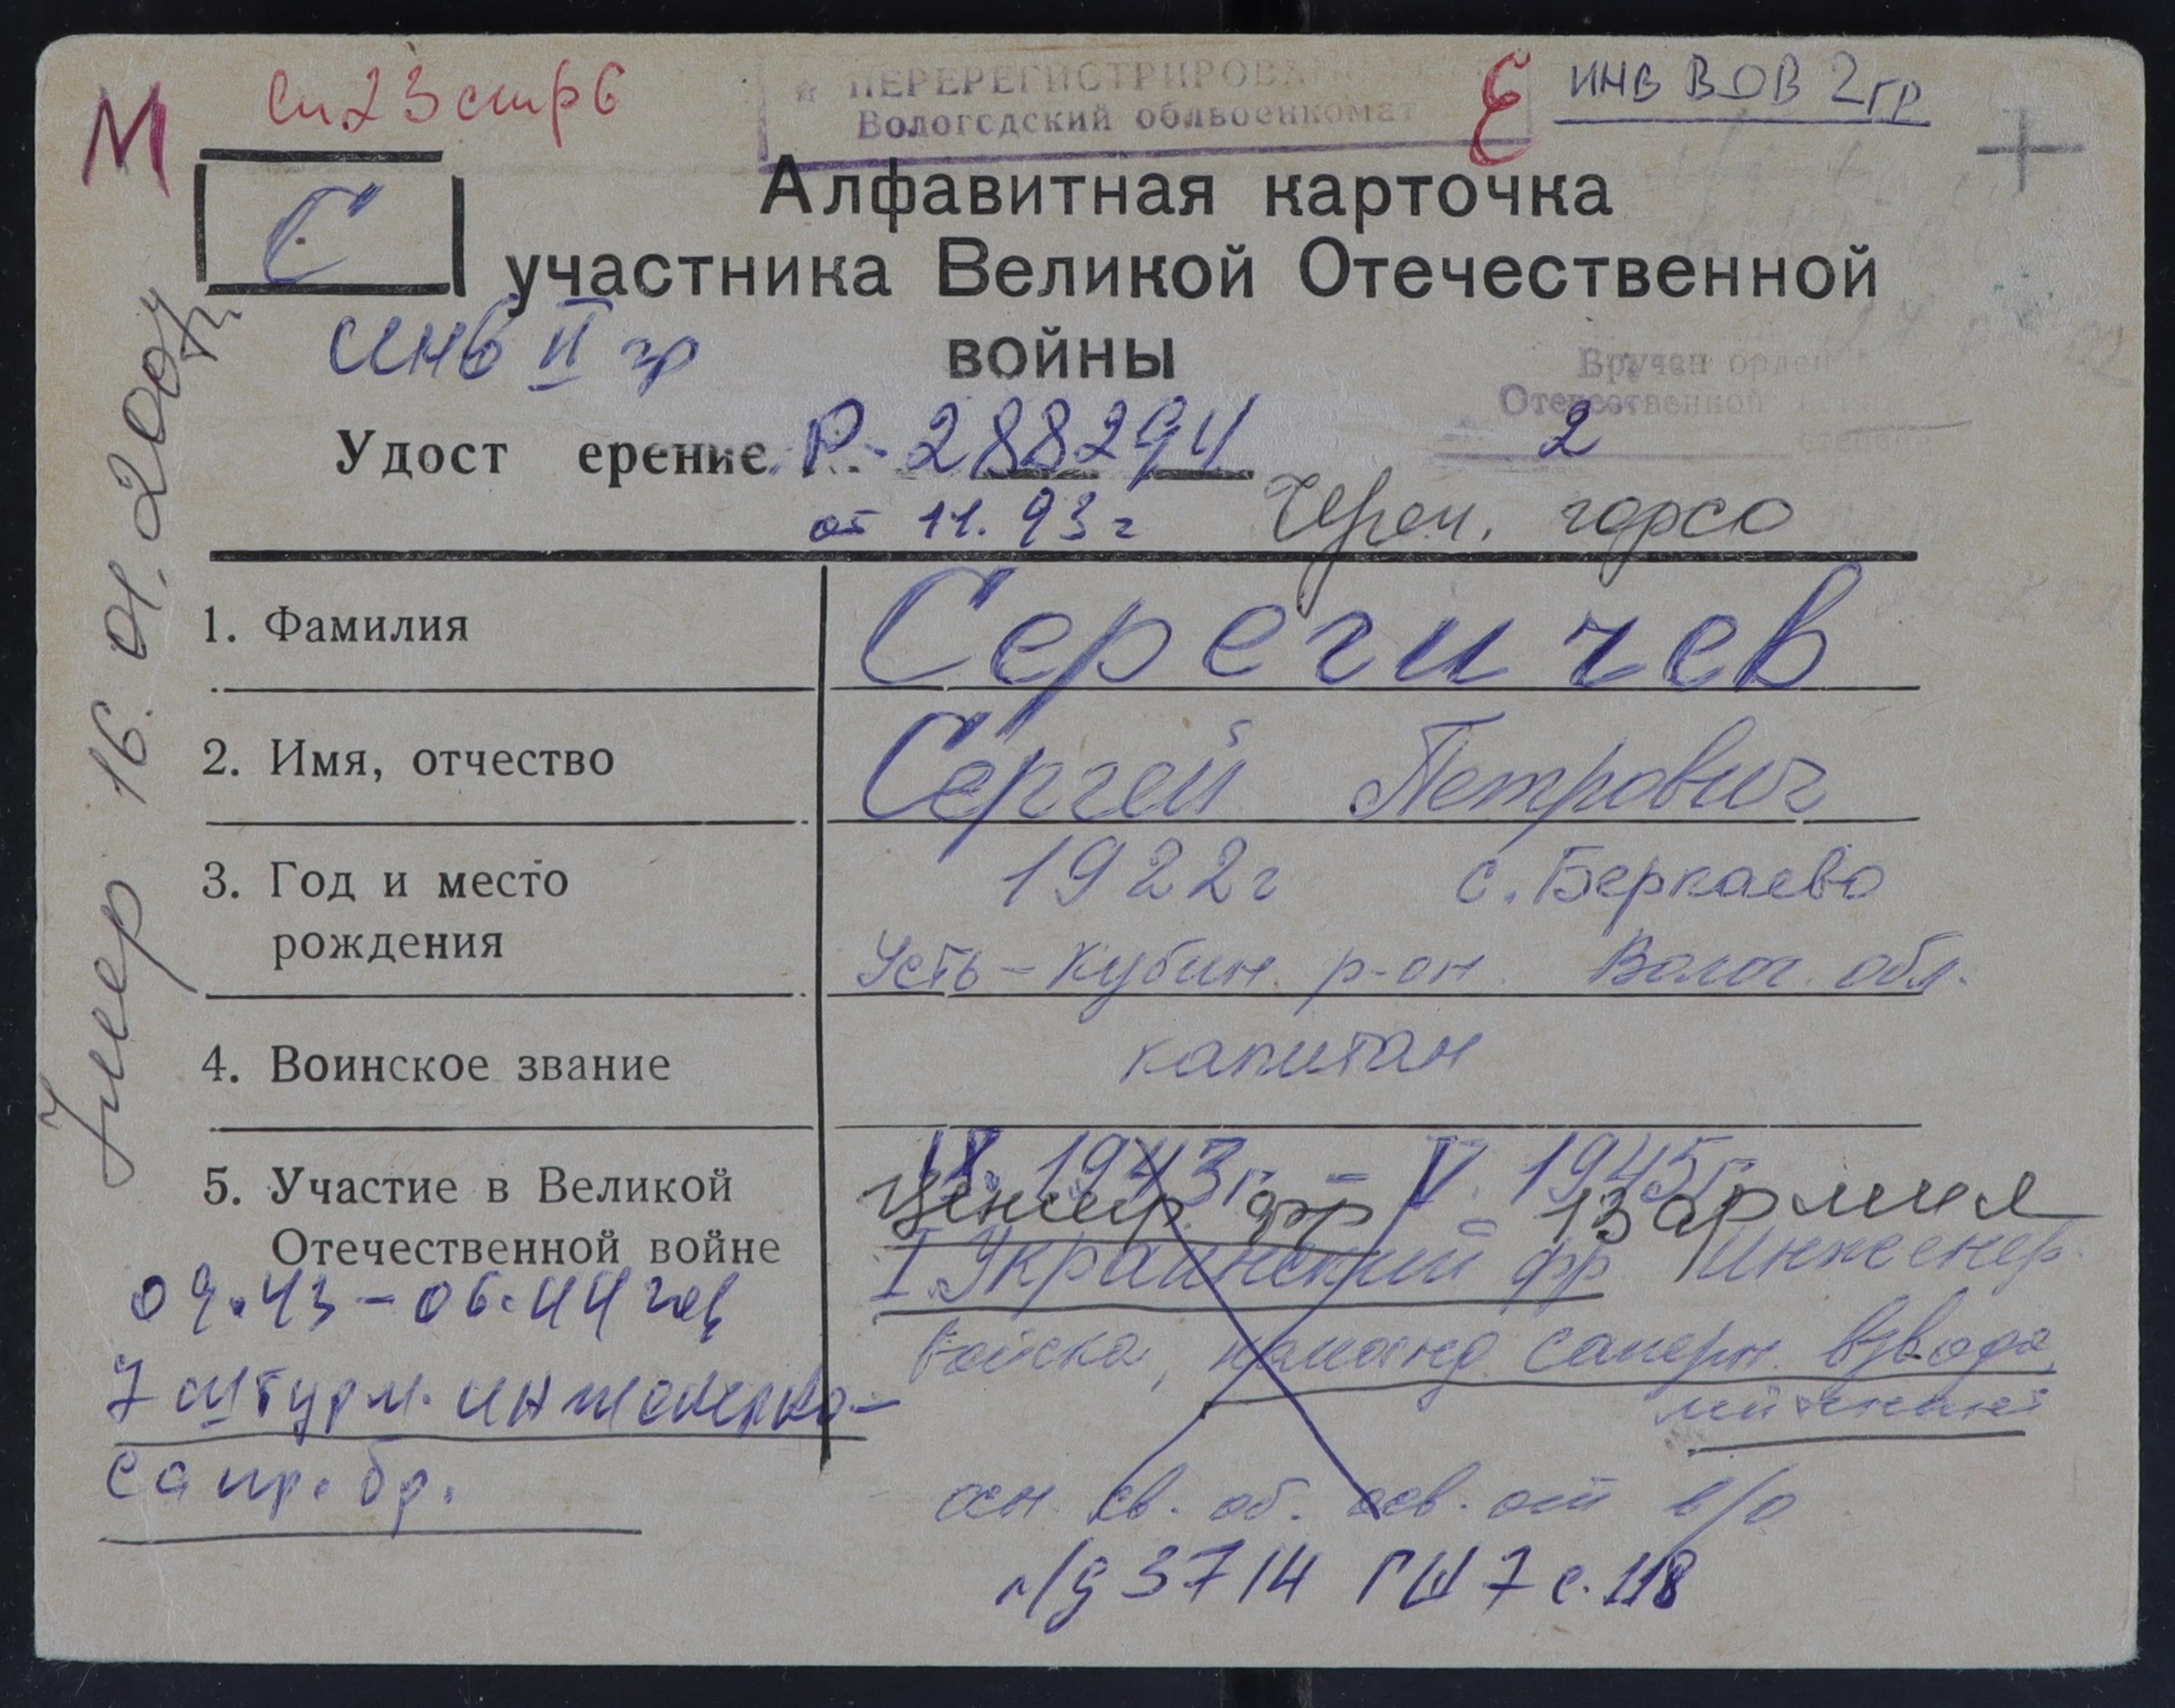 М
Сп 23 стр 6
ПЕРЕРЕГИСТРИРОВА
Вологодский облвоенкомат
ИНВ ВОВ 2гр
С
Алфавитная карточка
участника Великой Отечественной
войны
инв II гр
Вручен орден
Отечественной
2
степени
Удост ерение Р-288294
от 11.93г Череп. горсо
Умер 16.01.2004г
1. Фамилия Серегичев
2. Имя, отчество Сергей Петрович
3. Год и место рождения 1922г с. Беркаево
Усть-Кубин. р-он. Волог. обл.
4. Воинское звание капитан
5. Участие в Великой
Отечественной войне
1943г. - V. 1945г.
Централ. фр - 13 армия
I Украинский фр Инженер.
войска, команд саперн. взвода
09.43-06.44
7 штурм. инженерно-
сапр. бр.
осн. св. об. осв. от в/о
л/д 3714 ГШ 7 с. 118